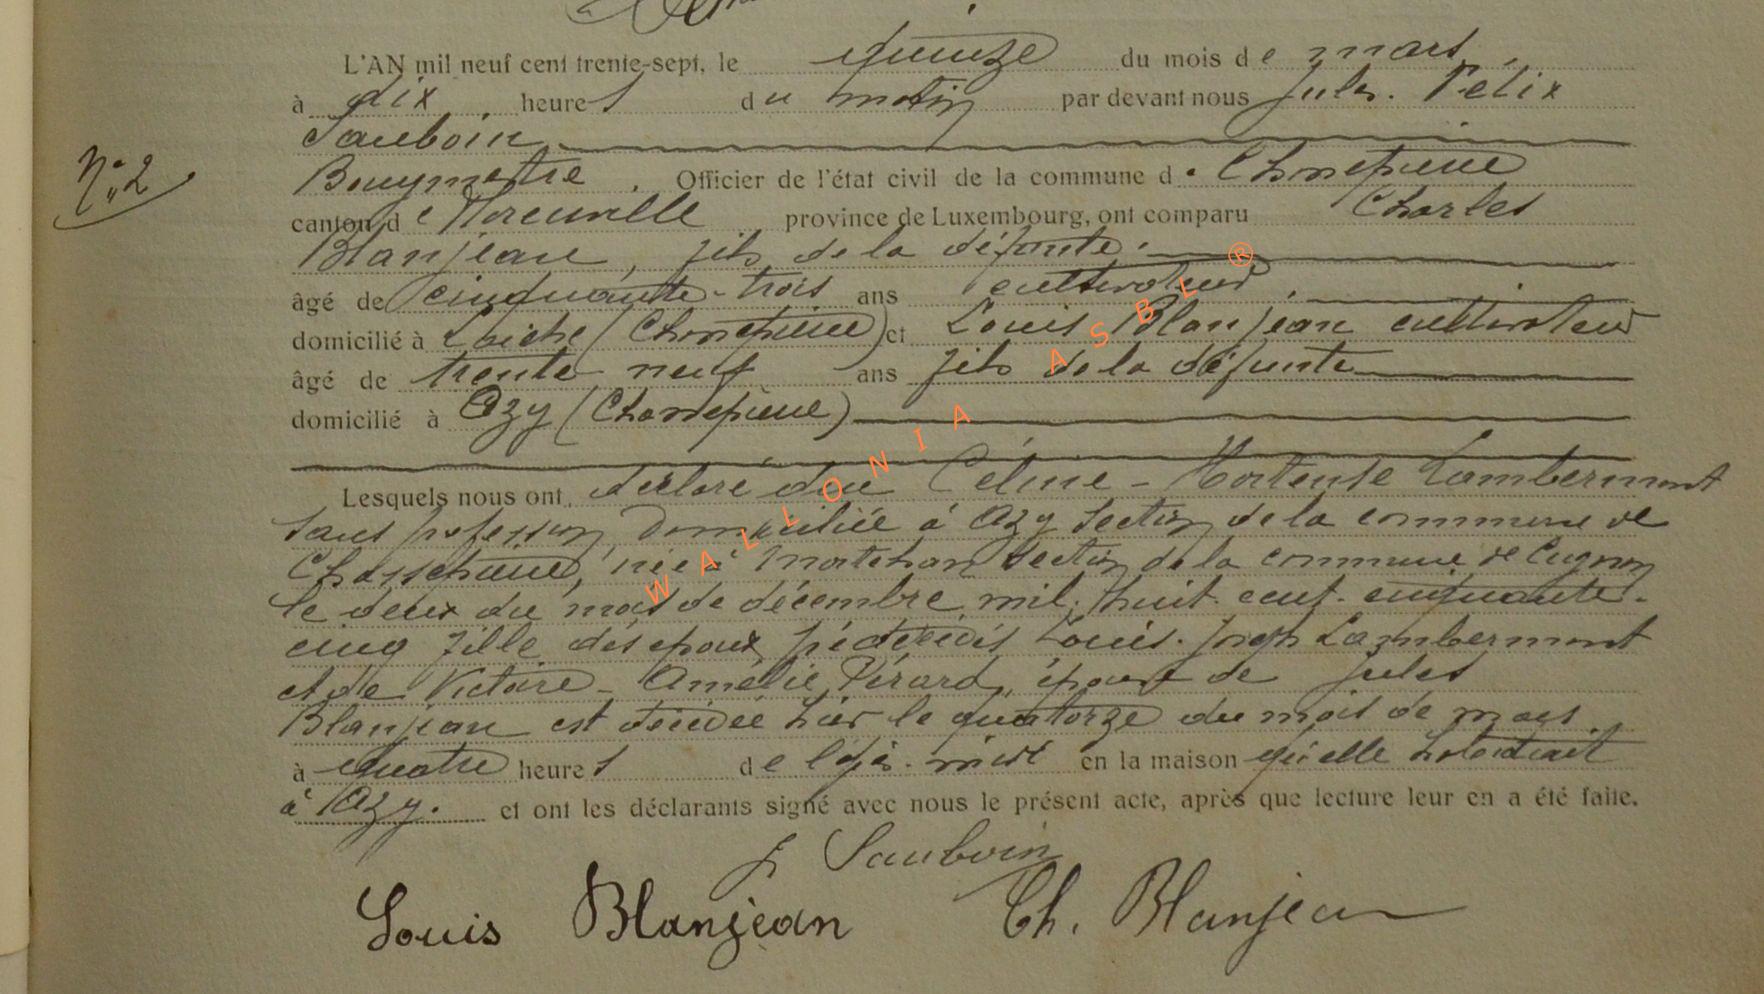 L'AN mil neuf cent trente-sept, le quinze du mois de mars,
à dix heures du matin par devant nous Jules. Félix
Sauboin
N° 2
Bourgmestre, Officier de l'état civil de la commune d. Chassepierre
canton de Florenville province de Luxembourg, ont comparu Charles
Blanjean, fils de la défunte.
âgé de cinquante-trois ans cultivateur,
domicilié à Laiche (Chassepierre) et Louis Blanjean cultivateur
âgé de trente neuf ans fils de la défunte
domicilié à Azy (Chassepierre)
Lesquels nous ont déclaré que Célinie - Hortense Lambermont
sans profession, domiciliée à Azy section de la commune de
Chassepierre, née à Mortehan section de la commune de Cugnon
le deux du mois de décembre mil. huit. cent. cinquante-
cinq fille des époux prédécédés Louis. Joseph Lambermont
et de Victoire - Amélie Pérard, épouse de Jules
Blanjean est décédée hier le quatorze du mois de mars
à quatre heures de l'après-midi en la maison qu'elle habitait
à Azy. et ont les déclarants signé avec nous le présent acte, après que lecture leur en a été faite.
J Sauboin
Louis Blanjean Th. Blanjean
WALLONIA ASBL ®